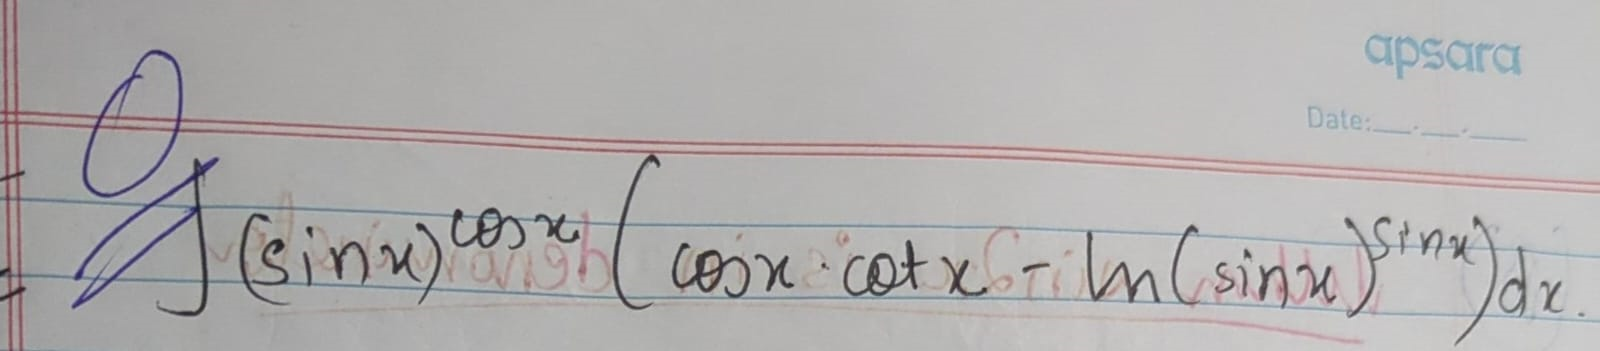 apsara
Date:__.__.__
Q
∫(sinx)^cosx (cosx · cotx - ln(sinx)^sinx)dx.